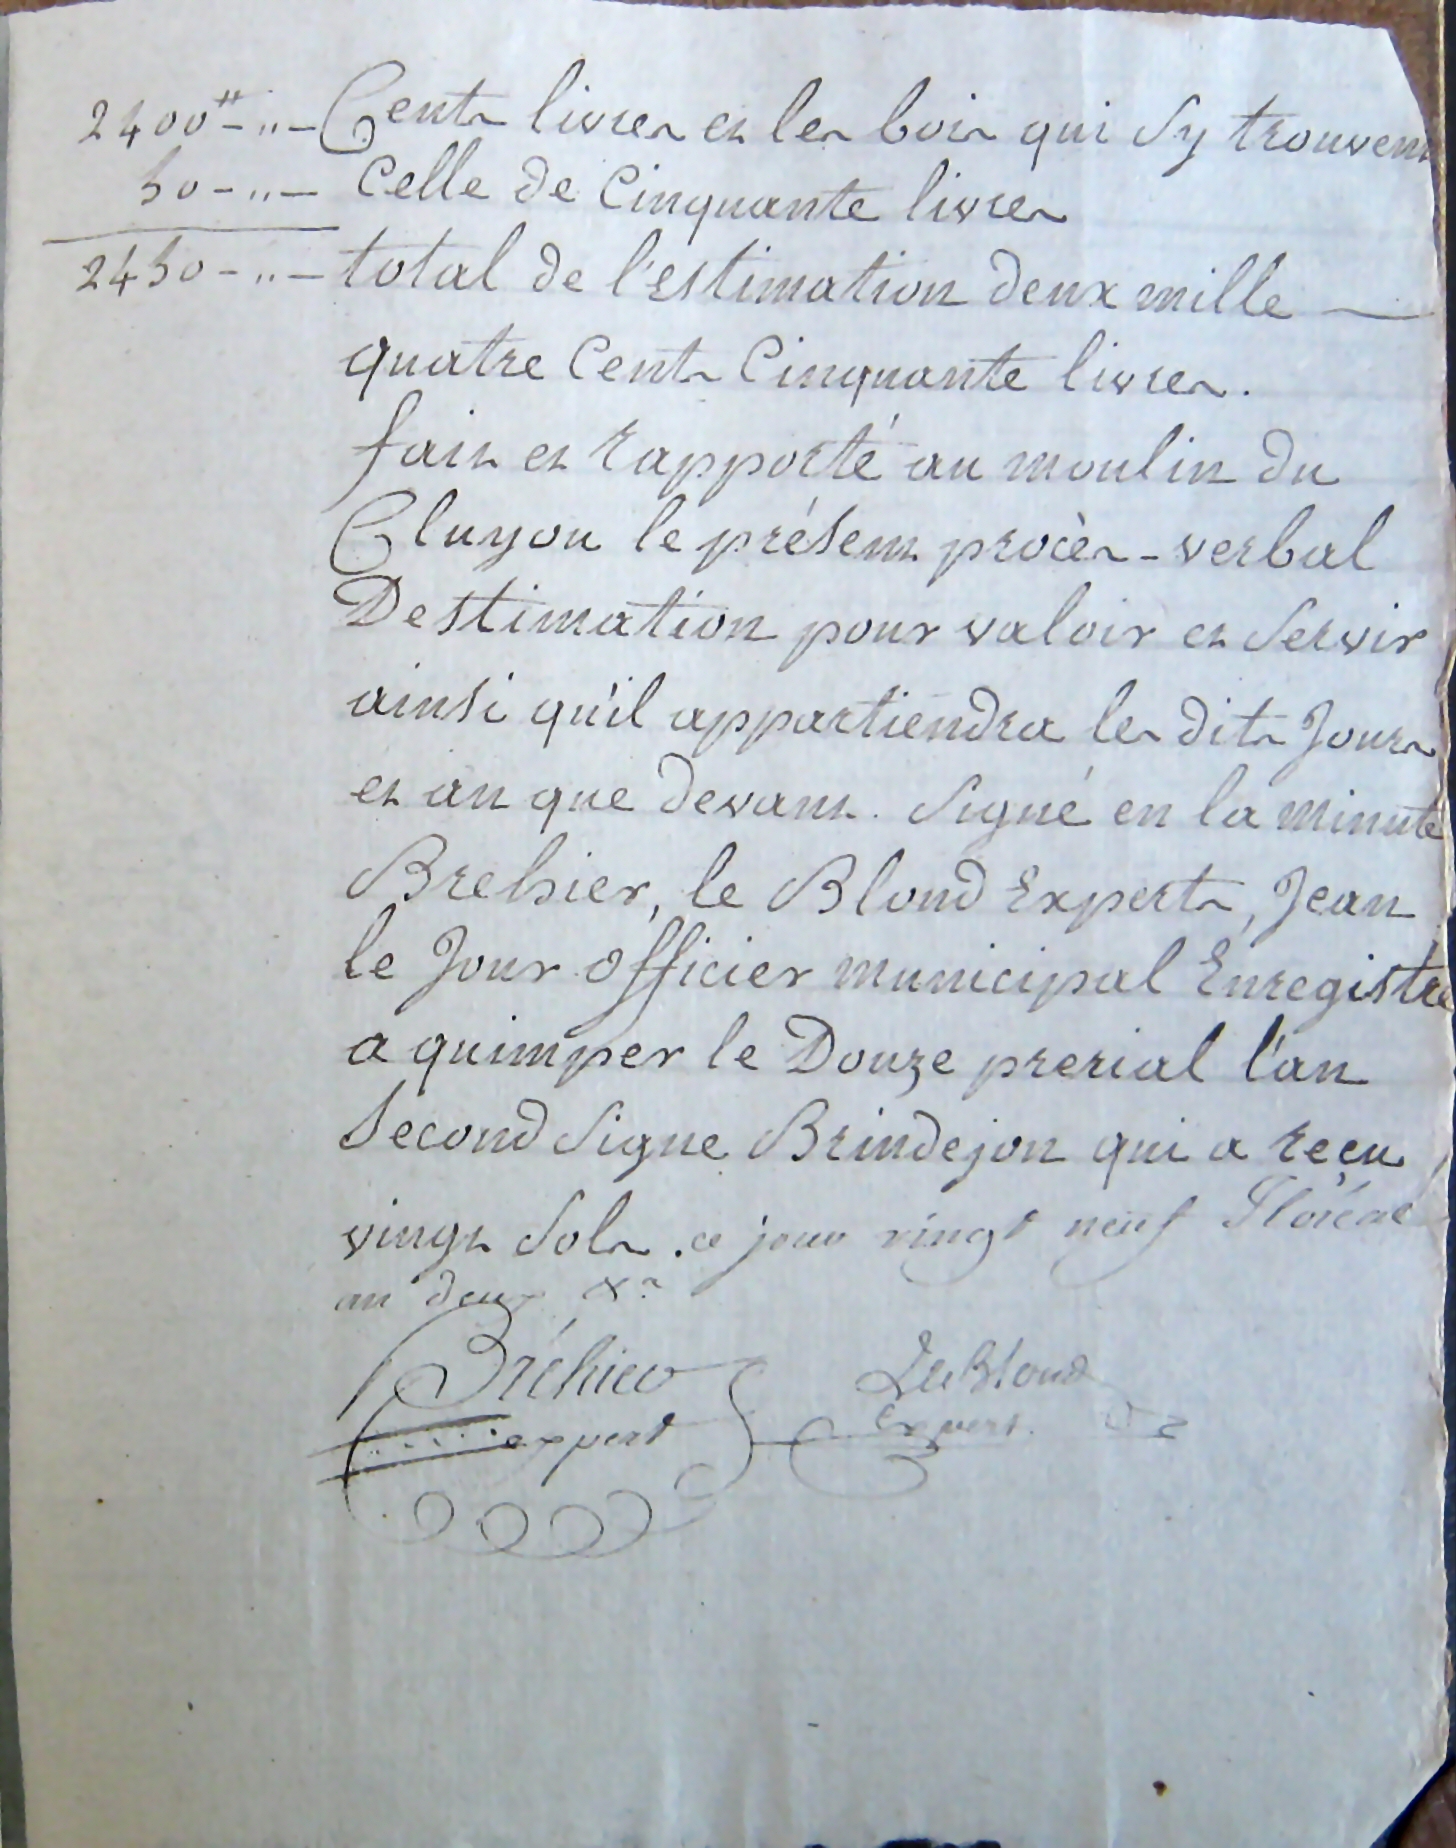 2400 ₶ - „ - Cents livres et les bois qui Sy trouvent
50 - „ - Celle de Cinquante livres
2450 - „ - total de l'estimation deux mille —
quatre Cents Cinquante livres.
fait et rapporté au moulin du
Cluyou le présent procès-verbal
Destimation pour valoir et Servir
ainsi qu'il appartiendra les dits Jours
et an que devant. Signé en la minute
Brehier, le Blond Experts, Jean
le Jour officier municipal Enregistré
a quimper le Douze prerial l'an
Second Signe Brindejon qui a reçu
vingt Sols. ce jour vingt neuf Floréal
an deux
Bréhier LeBlond
expert Expert